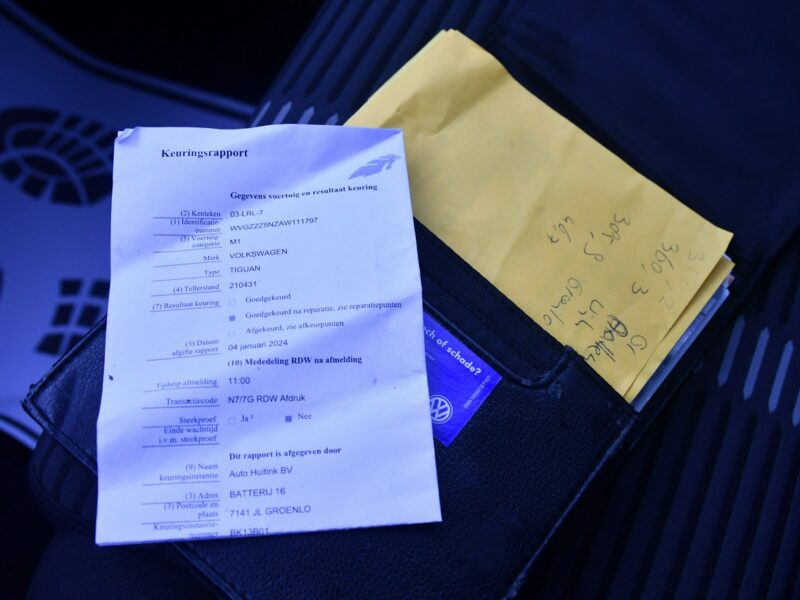 Keuringsrapport
Gegevens voertuig en resultaat keuring
(2) Kenteken 03-LRL-7
(1) Identificatie-
nummer WVGZZZ5NZAW111797
(5) Voertuig-
categorie M1
Merk VOLKSWAGEN
Type TIGUAN
(4) Tellerstand 210431
(7) Resultaat keuring Goedgekeurd
Goedgekeurd na reparatie, zie reparatiepunten
Afgekeurd, zie afkeurpunten
(3) Datum
afgifte rapport 04 januari 2024
(10) Mededeling RDW na afmelding
Tijdstip afmelding 11:00
Transactiecode N7/7G RDW Afdruk
Steekproef Ja Nee
Einde wachttijd
i.v.m. steekproef
Dit rapport is afgegeven door
(9) Naam
keuringsinstantie Auto Huitink BV
(3) Adres BATTERIJ 16
(3) Postcode en
plaats 7141 JL GROENLO
Keuringsinstantie-
nummer BK13B01
ch of schade?
360,3